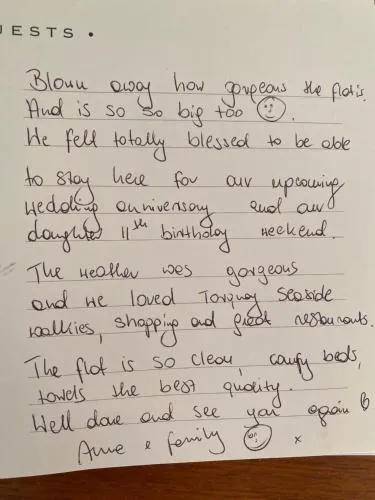 UESTS •
Blown away how gorgeous the flat is.
And is so so big too ☺.
We fell totally blessed to be able
to stay here for our upcoming
wedding anniversary and our
daughter 11th birthday weekend.
The weather was gorgeous
and we loved Torquay seaside
walkies, shopping and great restaurants.
The flat is so clean, comfy beds,
towels the best quality.
Well done and see you again
Anne & family ☺ x